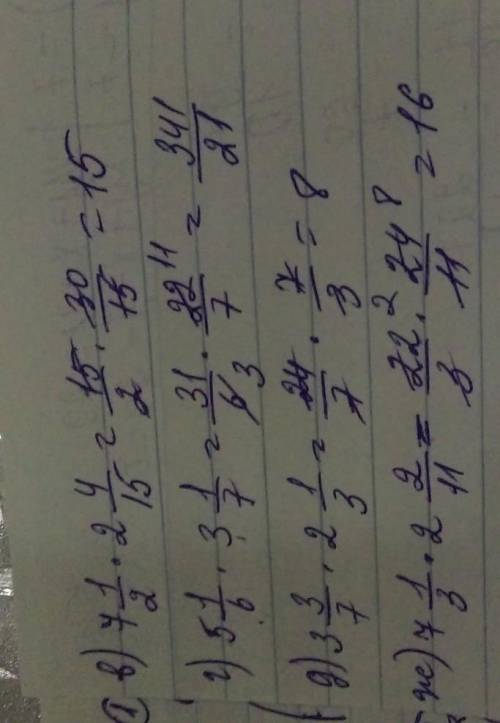 1 в) 7 1/2 · 2 4/15 = 15/2 · 30/15 = 15
г) 5 1/6 · 3 1/7 = 31/6 3 · 22/7 11 = 341/21
д) 3 3/7 · 2 1/3 = 24/7 · 7/3 = 8
ж) 7 1/3 · 2 2/11 = 22/3 2 · 24/11 8 = 16